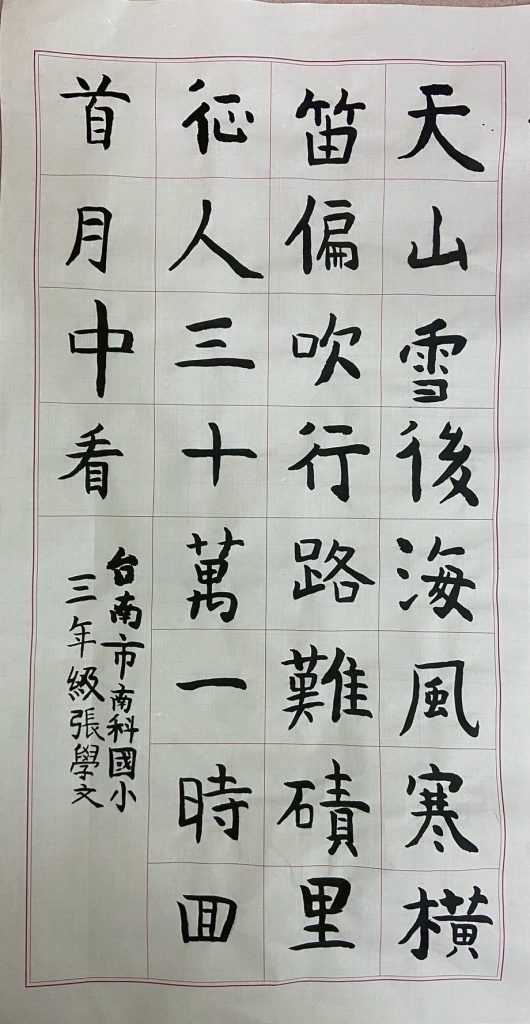 天山雪後海風寒橫
笛偏吹行路難磧里
征人三十萬一時回
首月中看
台南市南科國小
三年級張學文